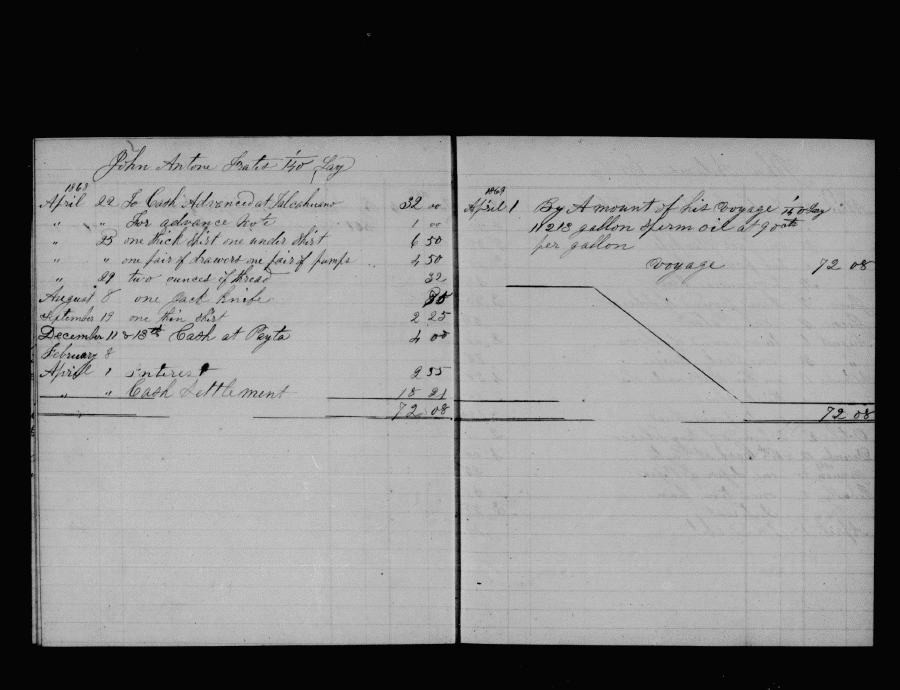 John Antone Frates 1/140 Lay
1863
April 22 To Cash Advanced at Talcahuano 32 00
" " For advance Note 1 00
" 25 one thick Shirt one under Shirt 6 50
" " one pair of drawers one pair of pumps 4 50
" 29 two ounces of thread 32
August 8 one Jack Knife
September 19 one thin Shirt 2 25
December 11 & 13th Cash at Payta 4 00
February 8
April 1 interest 2 55
" " Cash Settlement 18 21
72 08
April 1 By Amount of his Voyage 1/140 Lay
11213 gallon Sperm oil at 90 cts
per gallon
Voyage 72 08
72 08